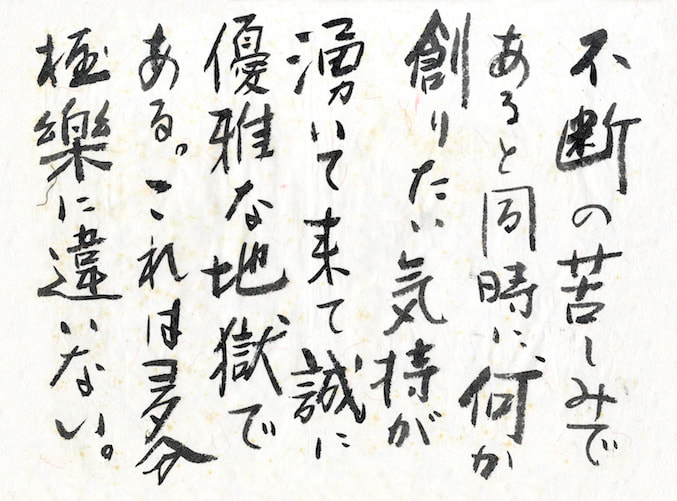 不断の苦しみで
あると同時に、何か
創りたい気持が
湧いて来て誠に
優雅な地獄で
ある。これは多分
極樂に違いない。